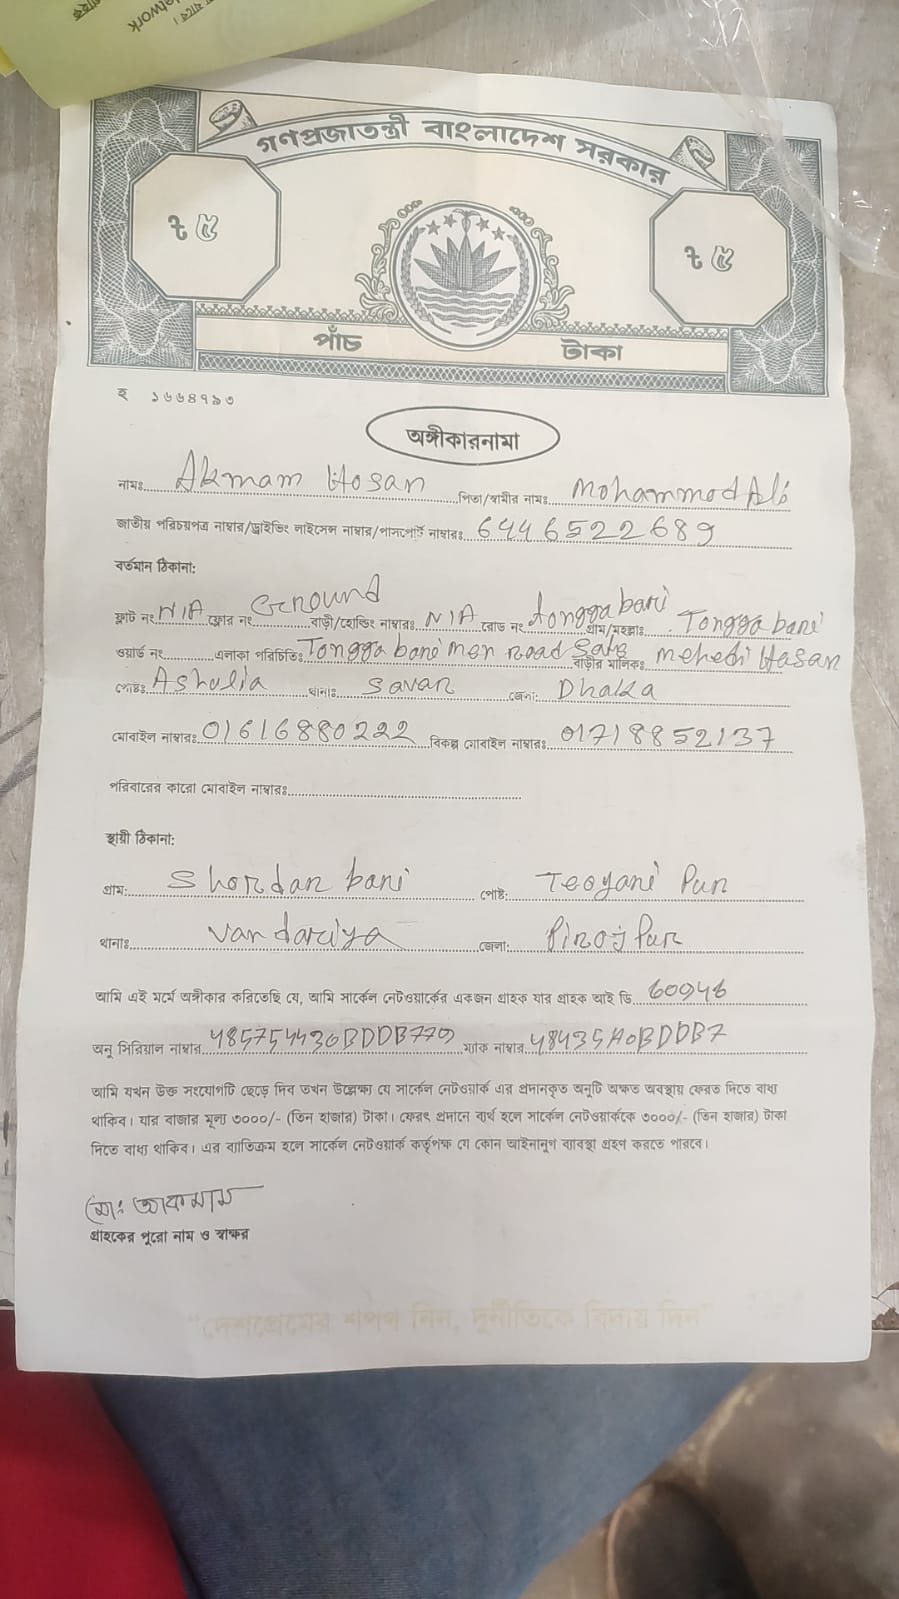 গণপ্রজাতন্ত্রী বাংলাদেশ সরকার
৳ ৫
৳ ৫
পাঁচ টাকা
হ ১৬৬৪৭৯৩
অঙ্গীকারনামা
নামঃ Akmam Hosan পিতা/স্বামীর নামঃ Mohammod Ali
জাতীয় পরিচয়পত্র নাম্বার/ড্রাইভিং লাইসেন্স নাম্বার/পাসপোর্ট নাম্বারঃ 6446522689
বর্তমান ঠিকানা:
ফ্লাট নং N/A ফ্লোর নং Ground বাড়ী/হোল্ডিং নাম্বারঃ N/A রোড নং tonggabari গ্রাম/মহল্লাঃ Tonggabari
ওয়ার্ড নং এলাকা পরিচিতিঃ Tonggabari men road বাড়ীর মালিকঃ mehedi Hasan
পোষ্টঃ Ashulia থানাঃ Savar জেলা: Dhaka
মোবাইল নাম্বারঃ 01616880222 বিকল্প মোবাইল নাম্বারঃ 01718852137
পরিবারের কারো মোবাইল নাম্বারঃ
স্থায়ী ঠিকানা:
গ্রাম: Shordar bari পোষ্ট: Teoyari Pur
থানাঃ Vandariya জেলা: Piroj Pur
আমি এই মর্মে অঙ্গীকার করিতেছি যে, আমি সার্কেল নেটওয়ার্কের একজন গ্রাহক যার গ্রাহক আই ডি. 60946
অনু সিরিয়াল নাম্বার ম্যাক নাম্বার 48435A0BDDB7
আমি যখন উক্ত সংযোগটি ছেড়ে দিব তখন উল্লেক্ষ্য যে সার্কেল নেটওয়ার্ক এর প্রদানকৃত অনুটি অক্ষত অবস্থায় ফেরত দিতে বাধ্য
থাকিব। যার বাজার মূল্য ৩০০০/- (তিন হাজার) টাকা। ফেরৎ প্রদানে ব্যর্থ হলে সার্কেল নেটওয়ার্ককে ৩০০০/- (তিন হাজার) টাকা
দিতে বাধ্য থাকিব। এর ব্যতিক্রম হলে সার্কেল নেটওয়ার্ক কর্তৃপক্ষ যে কোন আইনানুগ ব্যাবস্থা গ্রহণ করতে পারবে।
মোঃ আকমাম
গ্রাহকের পুরো নাম ও স্বাক্ষর
"দেশপ্রেমের শপথ নিন, দুর্নীতিকে বিদায় দিন"